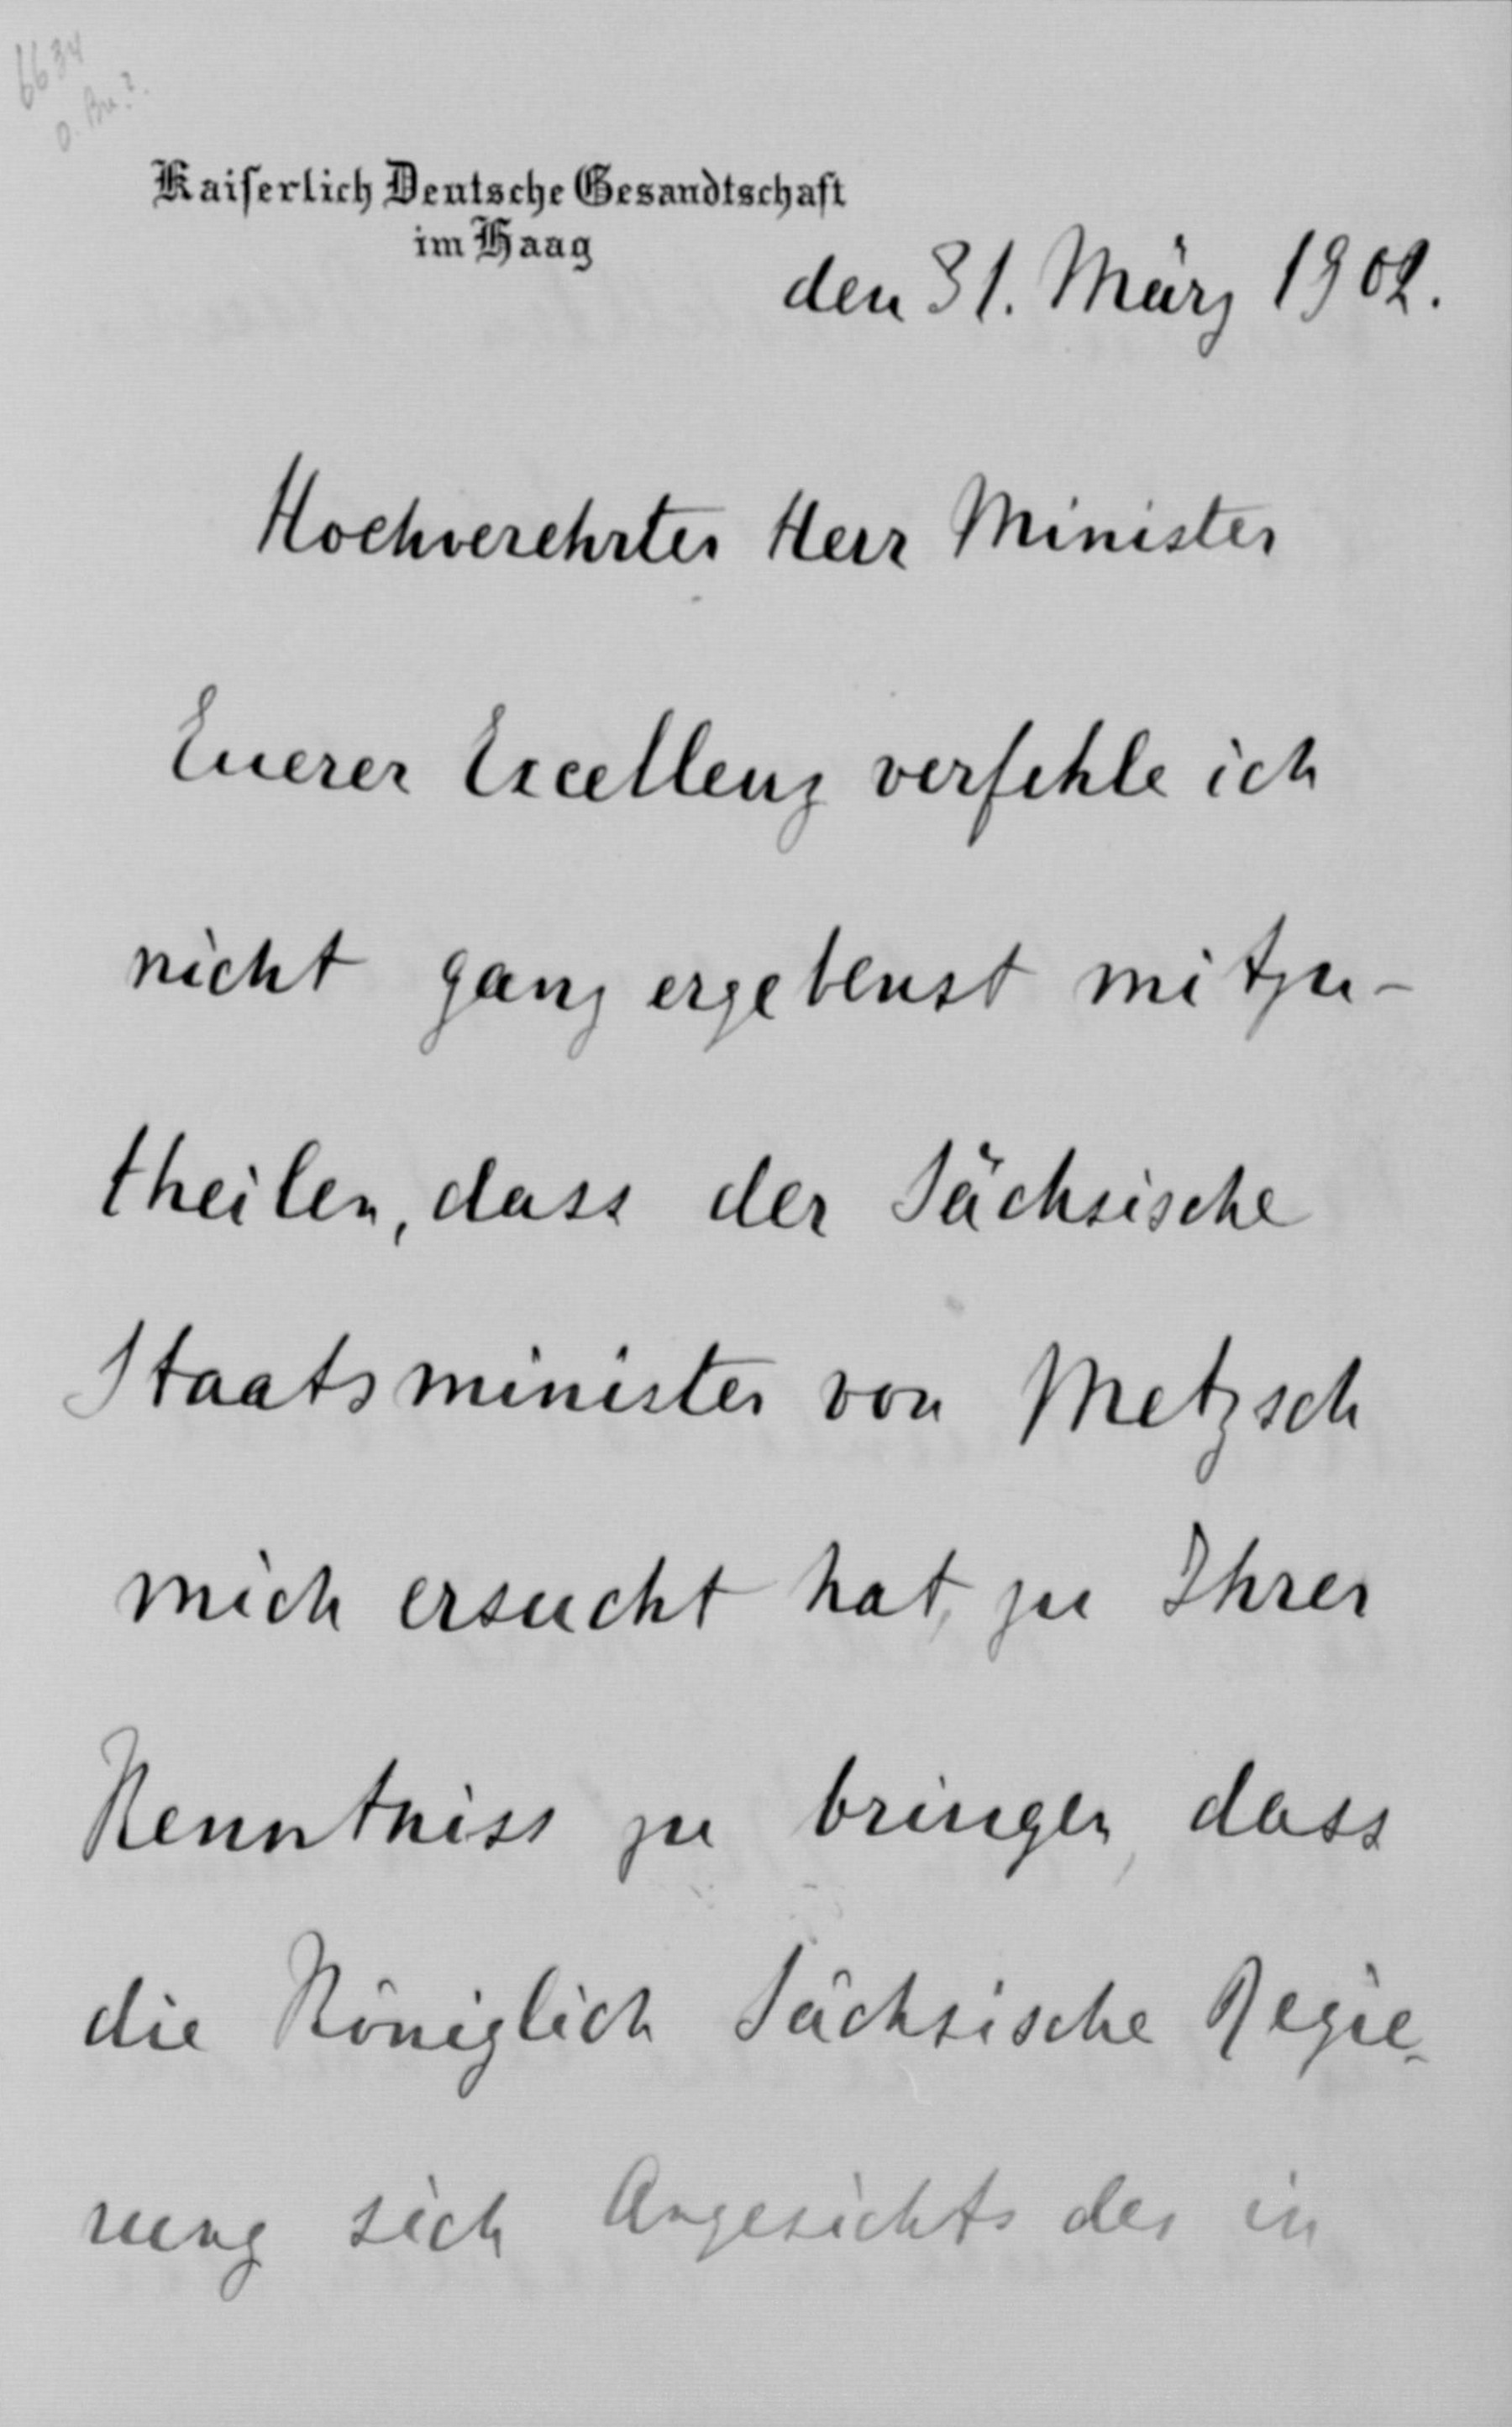 6634
Kaiserlich Deutsche Gesandtschaft
im Haag
den 31. März 1902.
Hochverehrter Herr Minister
Euerer Excellenz verfehle ich
nicht ganz ergebenst mitzu-
theilen, dass der Sächsische
Staatsminister von Metzsch
mich ersucht hat, zu Ihrer
Kenntniss zu bringen, dass
die Königlich Sächsische Regie-
rung sich Angesichts der in